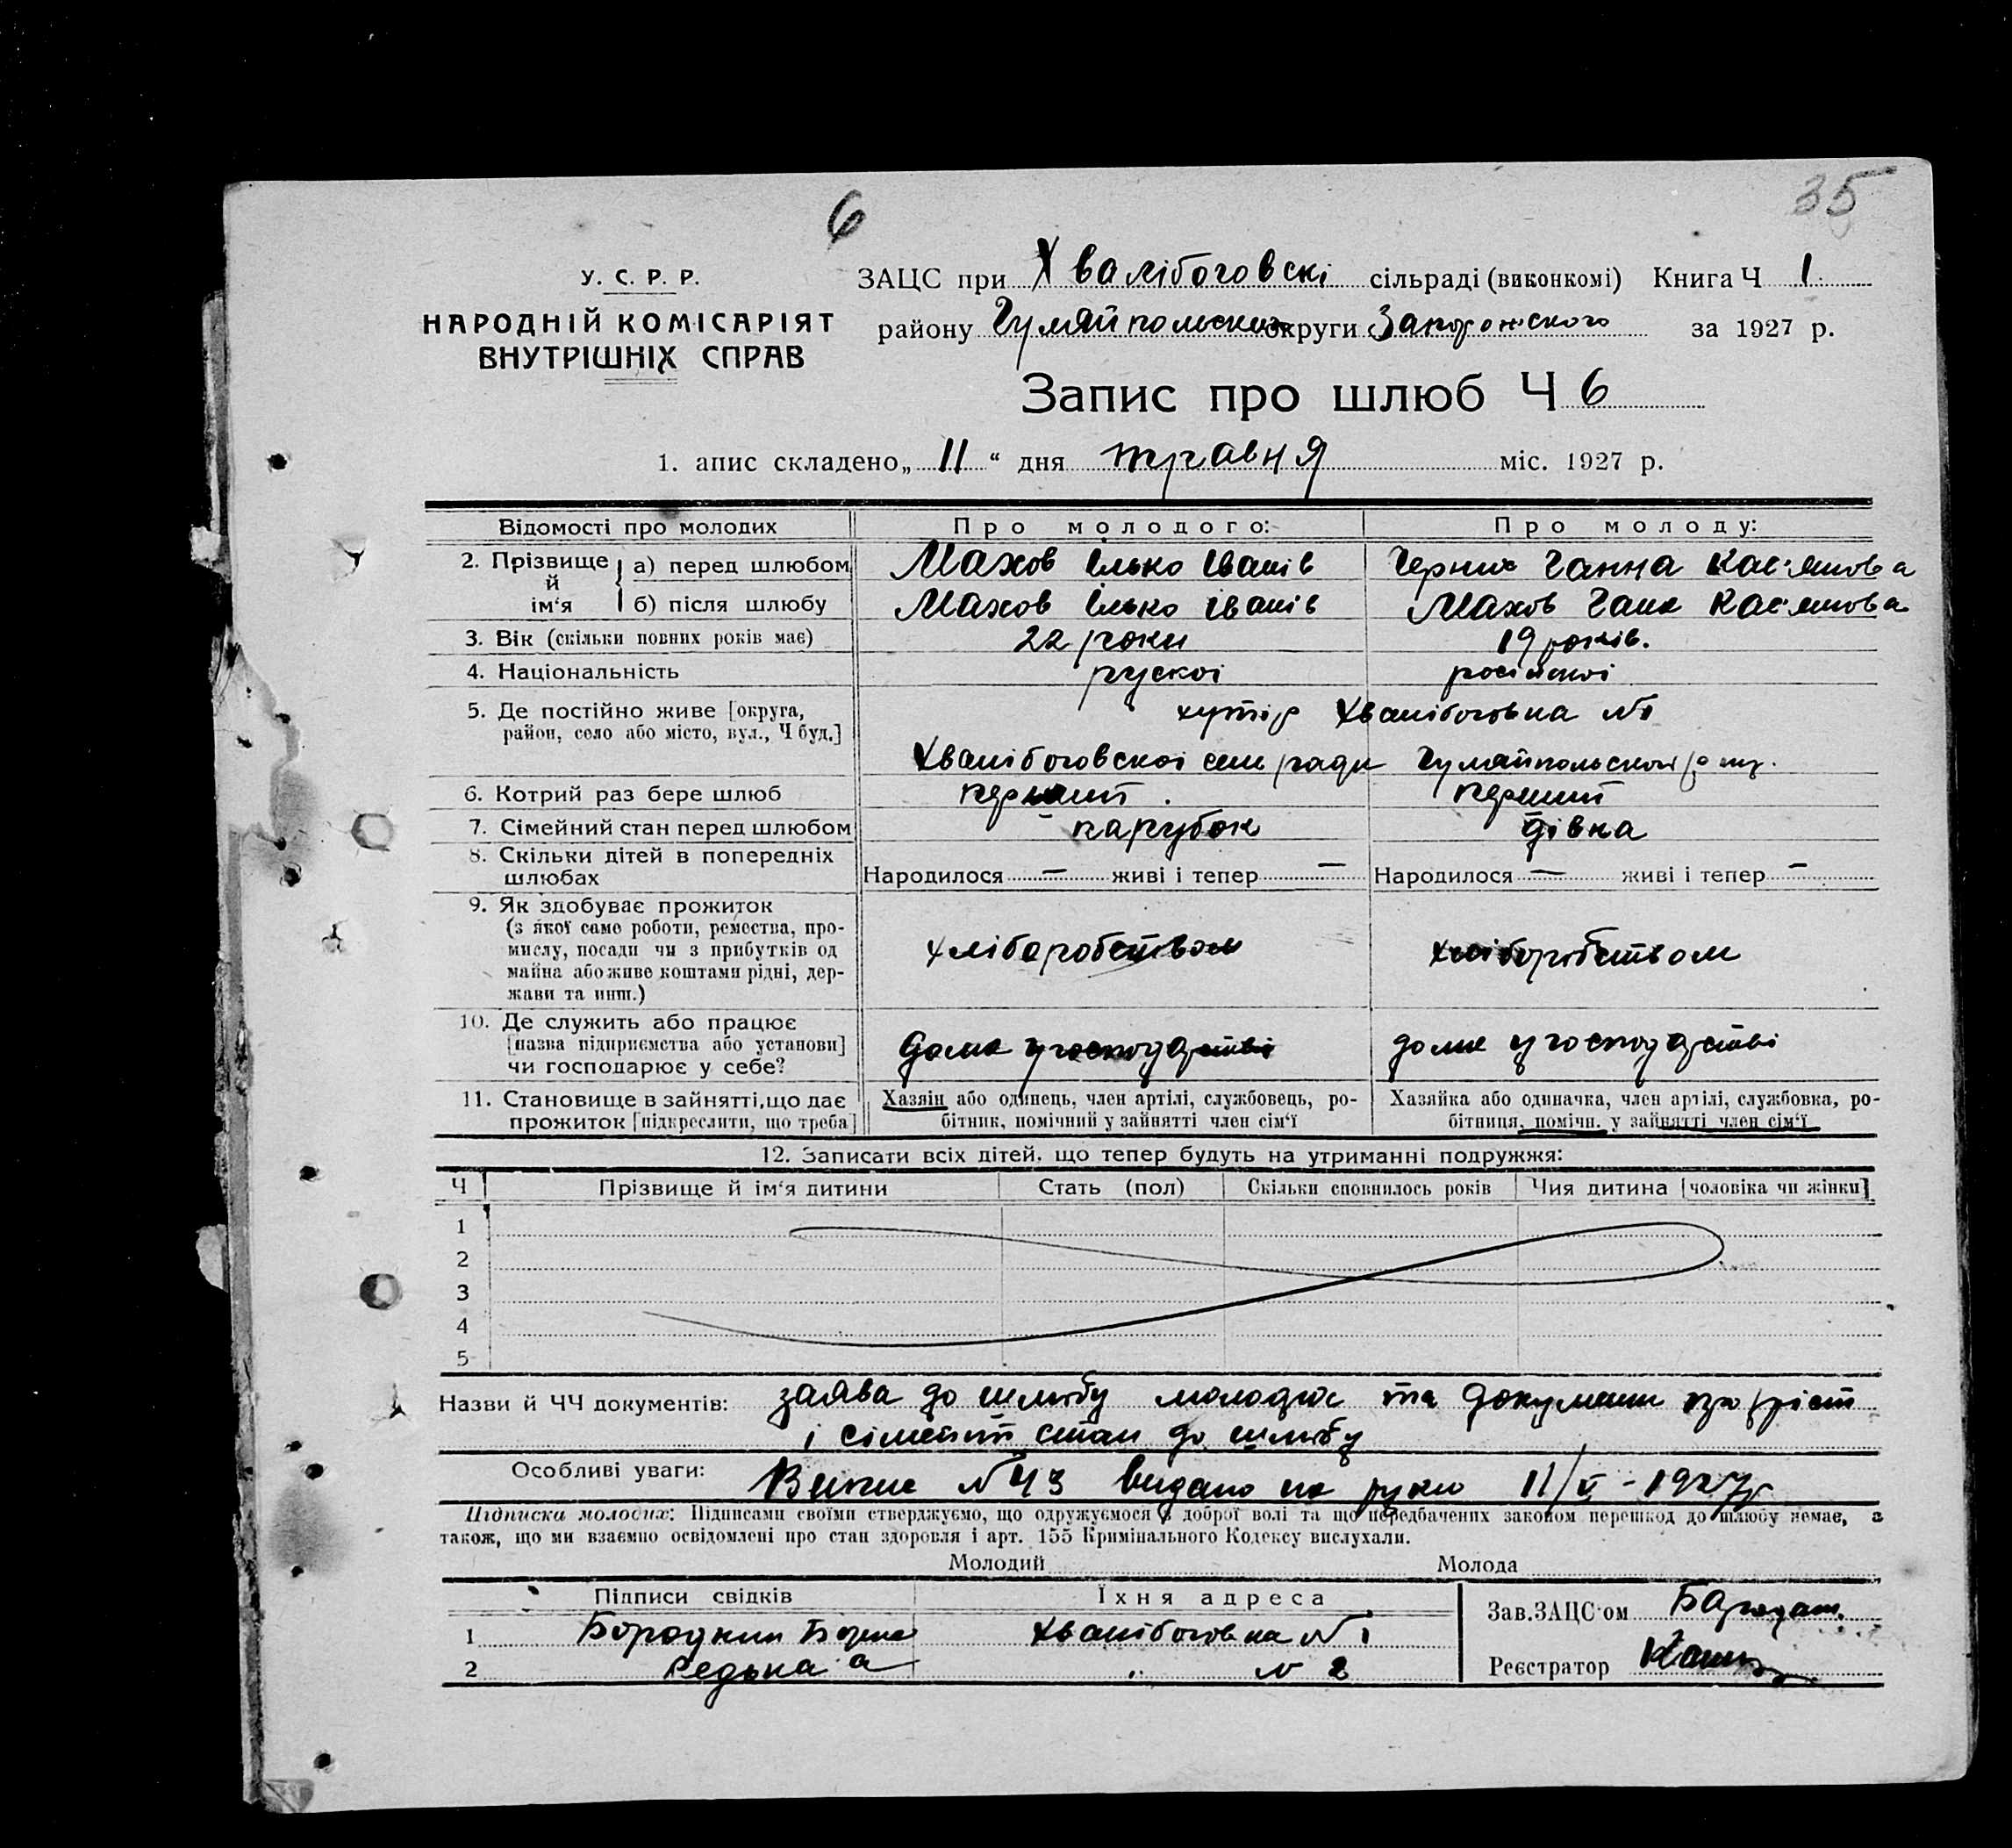 6
35
У. С. Р. Р.
НАРОДНІЙ КОМІСАРІЯТ
ВНУТРІШНІХ СПРАВ
ЗАЦС при Хвалібоговскі сільраді (виконкомі) Книга Ч 1
району Гуляйпольским округи Запорожского за 1927 р.
Запис про шлюб Ч 6
1. апис складено „ 11 “ дня травня міс. 1927 р.
Відомості про молодих Про молодого: Про молоду:
2. Прізвище й ім‘я
а) перед шлюбом Махов Ілько Іванів Черних Ганна Кас'янова
б) після шлюбу Махов Ілько Іванів Махов Гана Кас'янова
3. Вік (скільки повних років має) 22 роки 19 років.
4. Національність рускої російскої
5. Де постійно живе [округа, хутір Хвалібоговка №1
район, село або місто, вул., Ч буд.]
Хвалібоговскої сель ради Гуляйпольского
6. Котрий раз бере шлюб перший перший
7. Сімейний стан перед шлюбом парубок дівка
8. Скільки дітей в попередніх
шлюбах Народилося — живі і тепер — Народилося — живі і тепер —
9. Як здобуває прожиток
(з якої саме роботи, ремества, про-
мислу, посади чи з прибутків од хліборобством хліборобством
майна або живе коштами рідні, дер-
жави та инш.)
10. Де служить або працює
[назва підприємства або установи] дома у господарстві дома у господарстві
чи господарює у себе?
11. Становище в зайнятті, що дає Хазяїн або одинець, член артілі, службовець, ро- Хазяйка або одиначка, член артілі, службовка, ро-
прожиток [підкреслити, що треба] бітник, помічний у зайнятті член сім‘ї бітниця, помічн. у зайнятті член сім‘ї
12. Записати всіх дітей, що тепер будуть на утриманні подружжя:
Ч Прізвище й ім‘я дитини Стать (пол) Скільки сповнилось років Чия дитина [чоловіка чи жінки]
1
2
3
4
5
Назви й ЧЧ документів: заява до шлюбу молодих та документи про зріст
і сімейний стан до шлюбу
Особливі уваги: Випис №43 видано на руки 11/V - 1927р
Підписка молодих: Підписами своїми стверджуємо, що одружуємося з доброї волі та що передбачених законом перешкод до шлюбу немає, а
також, що ми взаємно освідомлені про стан здоровля і арт. 155 Кримінального Кодексу вислухали.
Молодий Молода
Підписи свідків Їхня адреса Зав. ЗАЦС‘ом
1 Бородкин Хвалібоговка №1
2 Редька а „ №2 Реєстратор